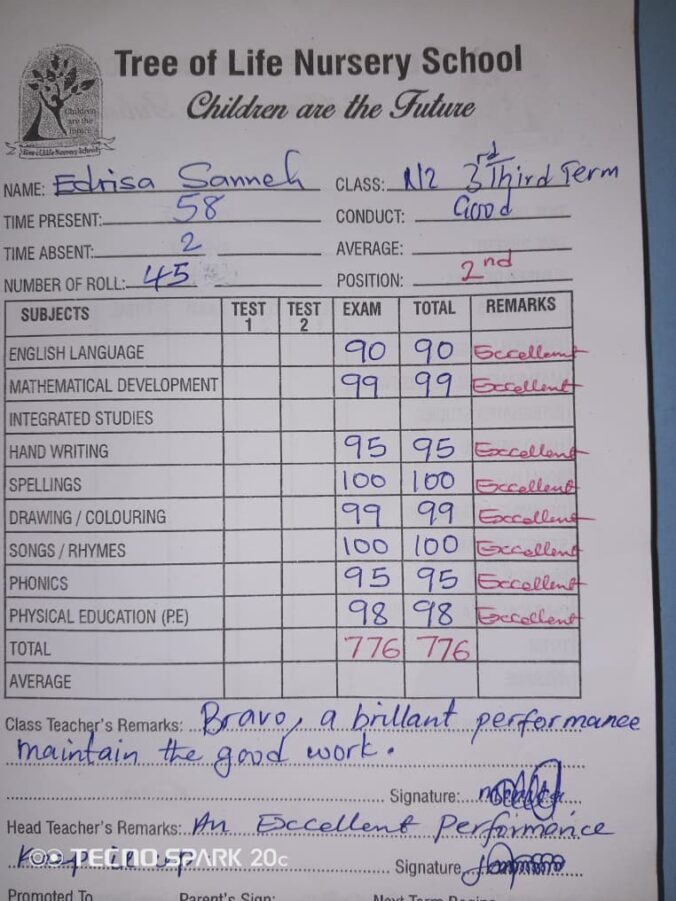 Children are the future
Tree of Life Nursery School
Tree of Life Nursery School
Children are the Future
NAME: Edrisa Sanneh CLASS: N2 3rd Third Term
TIME PRESENT: 58 CONDUCT: Good
TIME ABSENT: 2 AVERAGE:
NUMBER OF ROLL: 45 POSITION: 2nd
SUBJECTS TEST 1 TEST 2 EXAM TOTAL REMARKS
ENGLISH LANGUAGE 90 90 Excellent
MATHEMATICAL DEVELOPMENT 99 99 Excellent
INTEGRATED STUDIES
HAND WRITING 95 95 Excellent
SPELLINGS 100 100 Excellent
DRAWING / COLOURING 99 99 Excellent
SONGS / RHYMES 100 100 Excellent
PHONICS 95 95 Excellent
PHYSICAL EDUCATION (P.E) 98 98 Excellent
TOTAL 776 776
AVERAGE
Class Teacher's Remarks: Bravo, a brillant performance
maintain the good work.
Signature:
Head Teacher's Remarks: An Excellent Performance
Keep it up Signature
TECNO SPARK 20C
Promoted To Parent's Sign: Next Term Begins